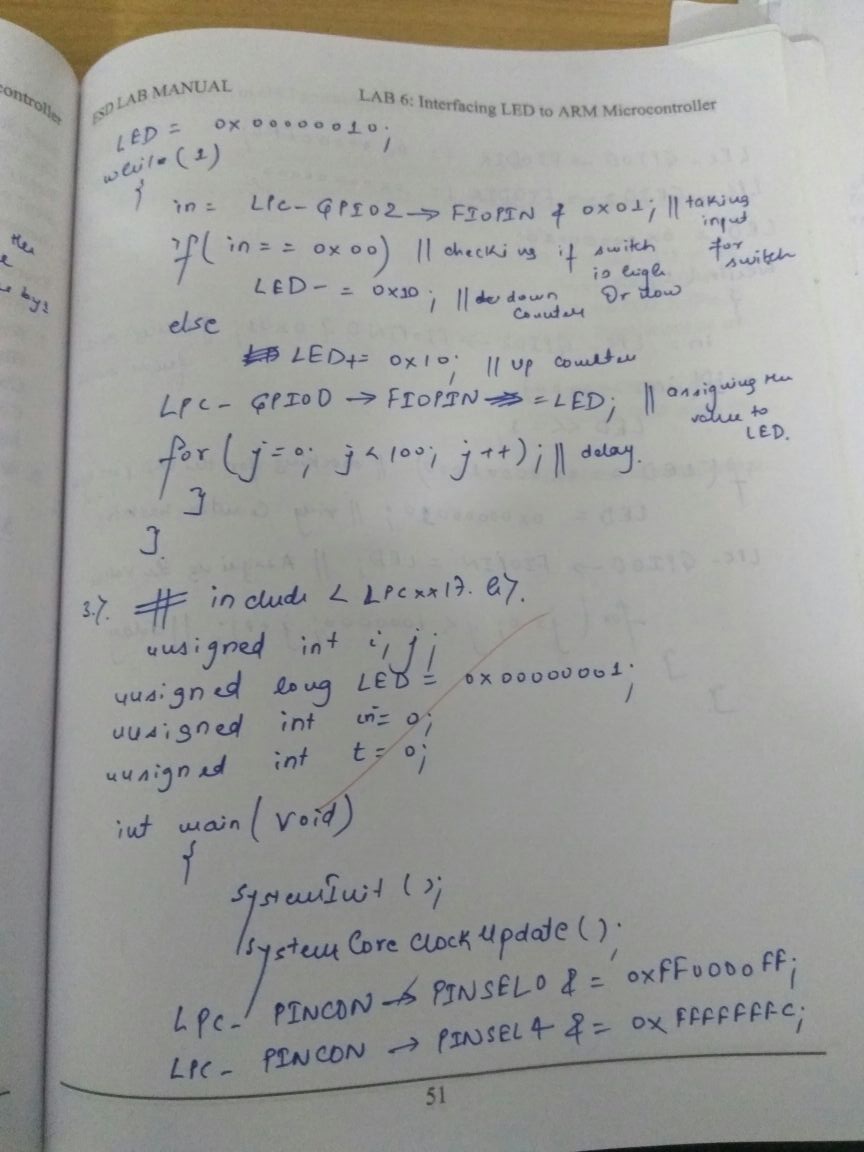 ontroller
the
e
e bys
ESD LAB MANUAL
LAB 6: Interfacing LED to ARM Microcontroller
LED = 0x00000010;
while(1)
{
in = LPC-GPIO2 → FIOPIN & 0x01; // taking input for switch
if(in == 0x00) // checking if switch is high Or low
LED- = 0x10; // down counter
else
LED+= 0x10; // up counter
LPC-GPIO0 → FIOPIN = LED; // assigning the value to LED.
for(j=0; j<100; j++); // delay.
}
}
3.7. # include < LPCxx17.h7.
unsigned int i, j;
unsigned long LED = 0x00000001;
unsigned int in= 0;
unsigned int t = 0;
int main(void)
{
SystemInit();
System Core Clock Update();
LPC- PINCON → PINSEL0 & = 0xFF0000FF;
LPC- PINCON → PINSEL4 & = 0xFFFFFFFC;
51